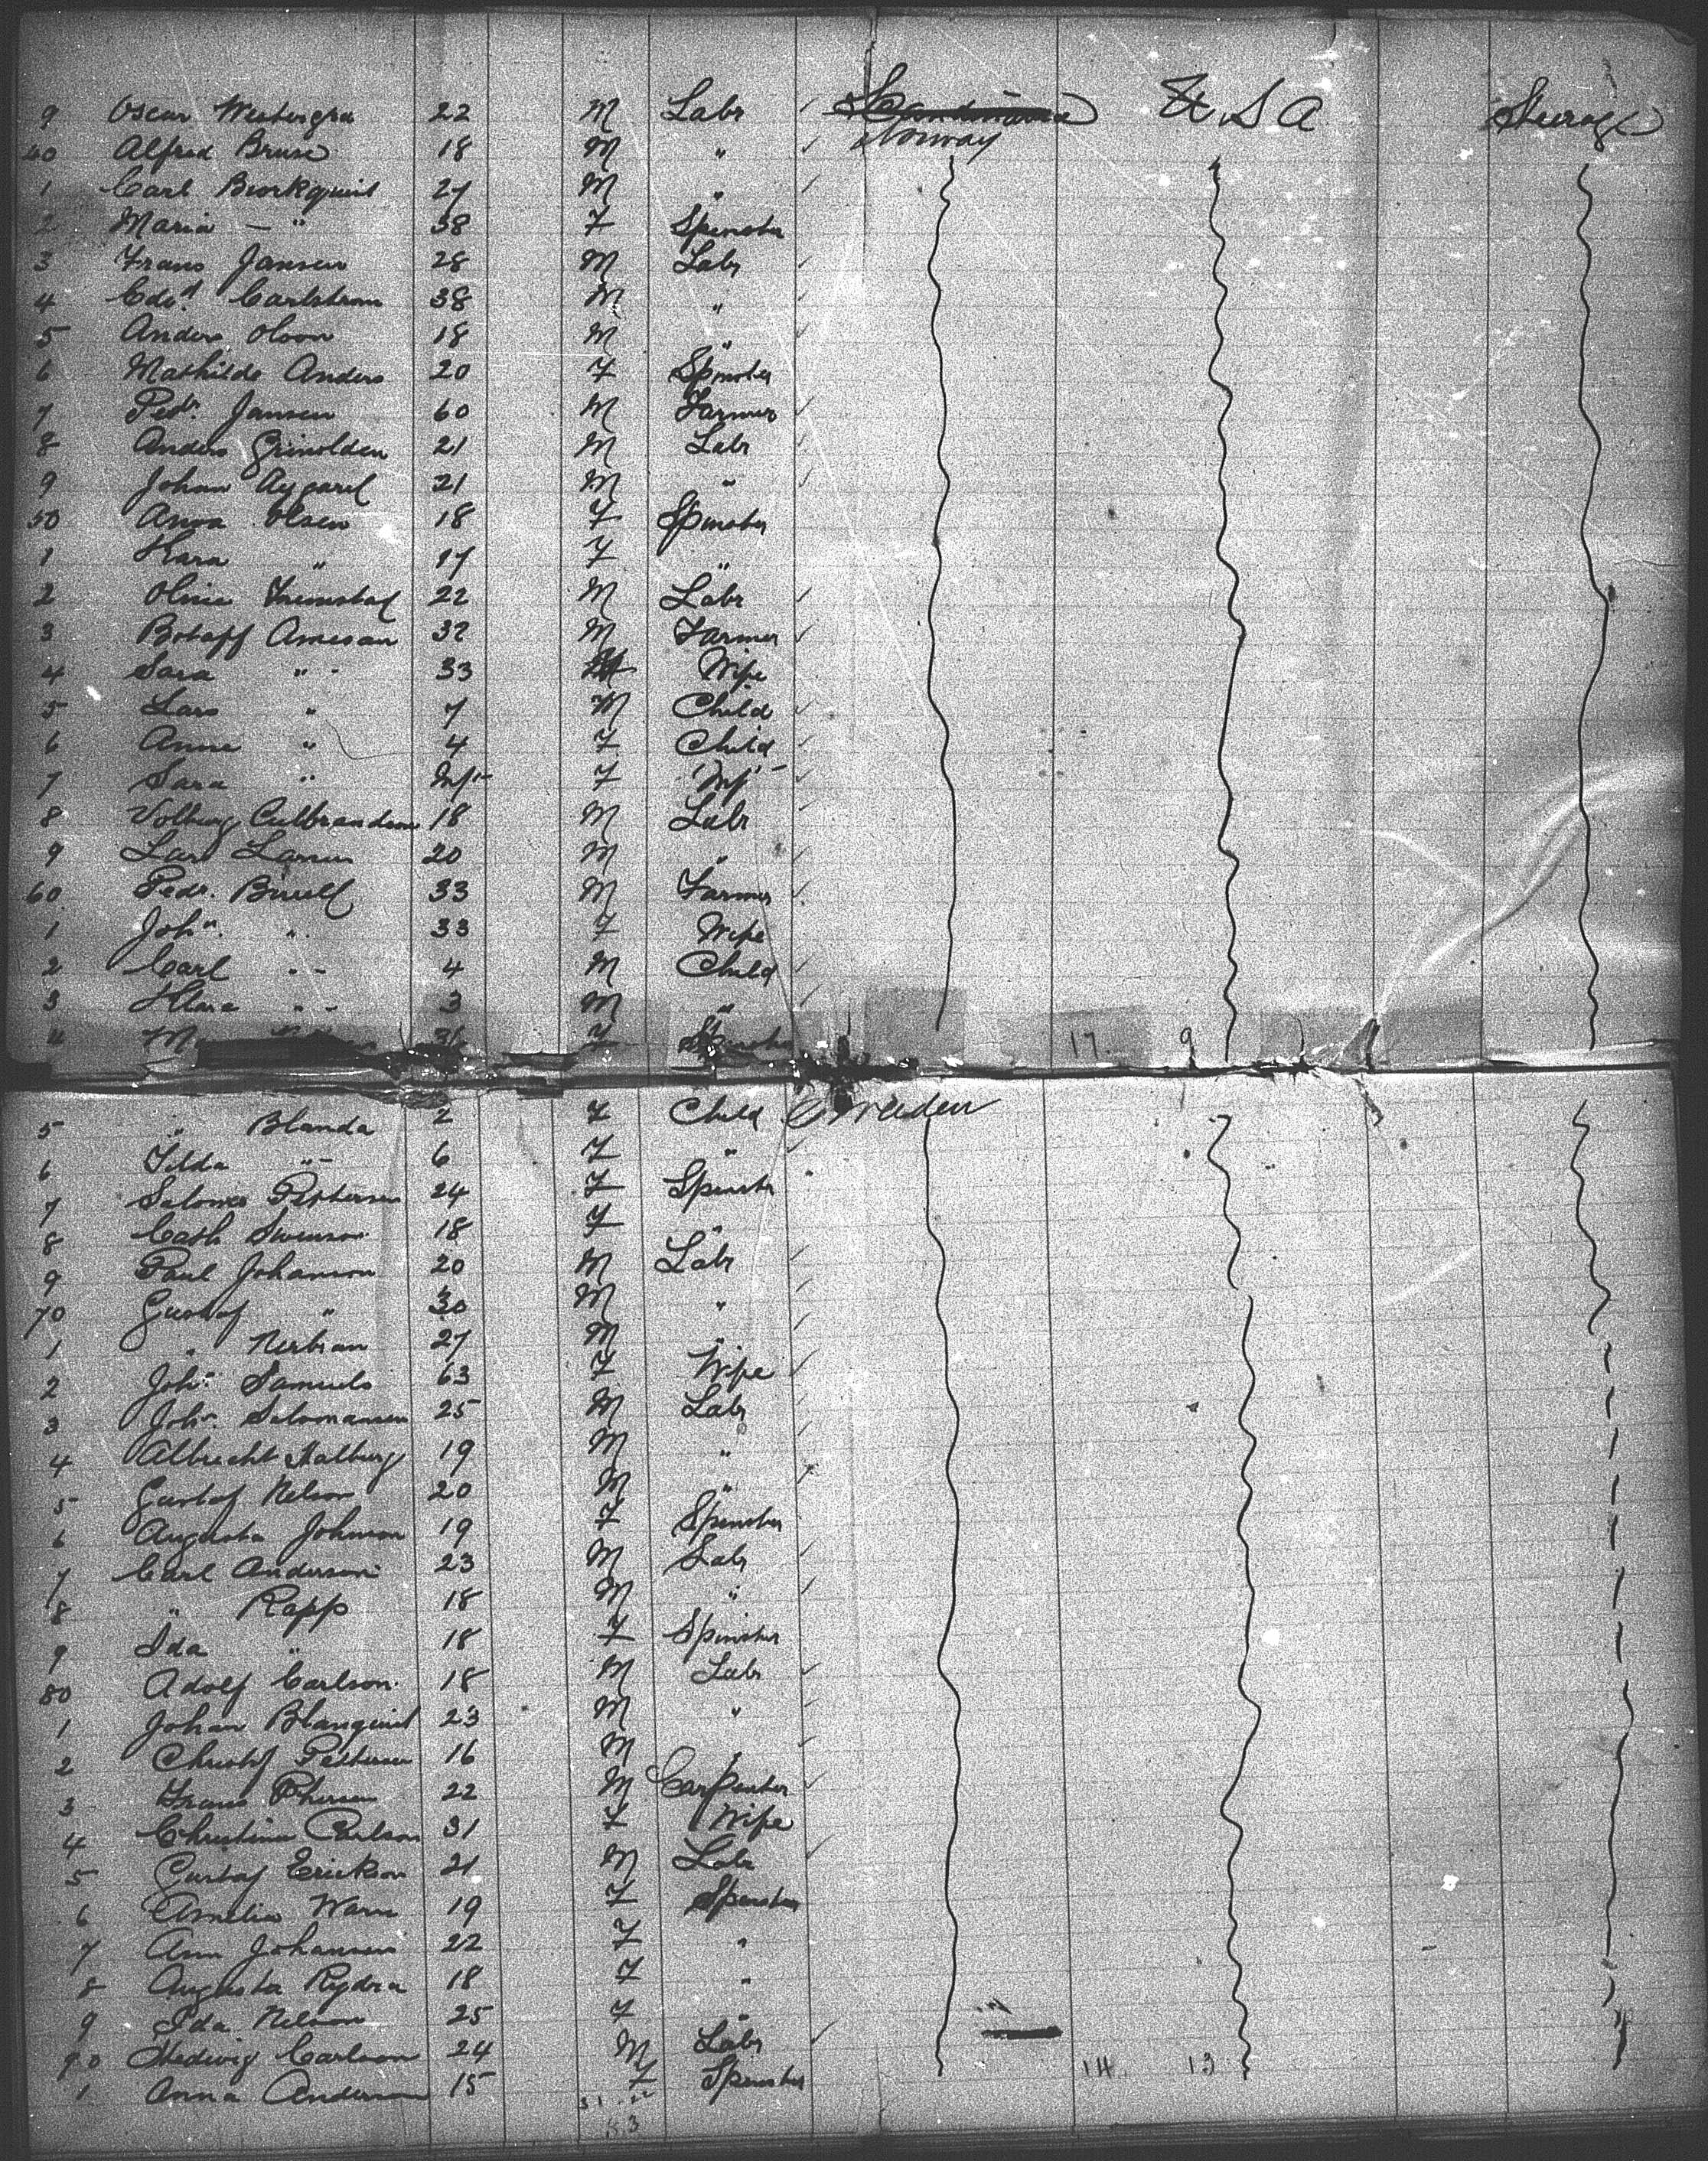 9 Oscar Westergra 22 M Labr Norway U.S.A Steerage
40 Alfred Bruse 18 M "
1 Carl Biorkquist 27 M "
2 Maria — " 38 F Spinster
3 Frans Jansen 28 M Labr
4 Carlstrom 38 M "
5 Anders Olson 18 M "
6 Mathilde Anders 20 F Spinster
7 Pedr. Jansen 60 M Farmer
8 Anders Grinolden 21 M Labr
9 Johan 21 M "
50 Anna Olsen 18 F Spinster
1 Kara " 17 F "
2 22 M Labr
3 Botapp 32 M Farmer
4 Sara " 33 Wife
5 Lars " 7 M Child
6 Anna " 4 F Child
7 Sara " Inft F Inft
8 Volburg Culbrandson 18 M Labr
9 Lars Larsen 20 M "
60 Pedr. 33 M Farmer
1 John. " 33 F Wife
2 Carl " 4 M Child
3 Klara " 3 M "
4 F Spinster 17 9
5 " Blanda 2 F Child Sweden
6 Tilda " 6 F "
7 Salomea Petterson 24 F Spinster
8 Cath Swenson 18 F "
9 Paul Johanson 20 M Labr
70 Gustaf " 30 M "
1 " Nerbian 27 M "
2 Joh. Samuels 63 F Wife
3 Joh. Salomansen 25 M Labr
4 Albrecht Halburg 19 M "
5 Gustaf Nelson 20 M "
6 Augusta Johnson 19 F Spinster
7 Carl Anderson 23 M Labr
8 " Rapp 18 M "
9 Ida " 18 F Spinster
80 Adolf Carlson 18 M Labr
1 Johan Blanquist 23 M "
2 Christof Petterson 16 M "
3 Frans 22 M Carpenter
4 Christina Carlson 31 F Wife
5 Gustaf Erickson 21 M Labr
6 Amelia Warn 19 F Spinster
7 Ann Johansen 22 F "
8 Augusta Rydra 18 F "
9 Ida Nelson 25 F "
90 Hedwig Carlson 24 M Labr 14 13
1 Anna Anderson 15 F Spinster
31 22
53